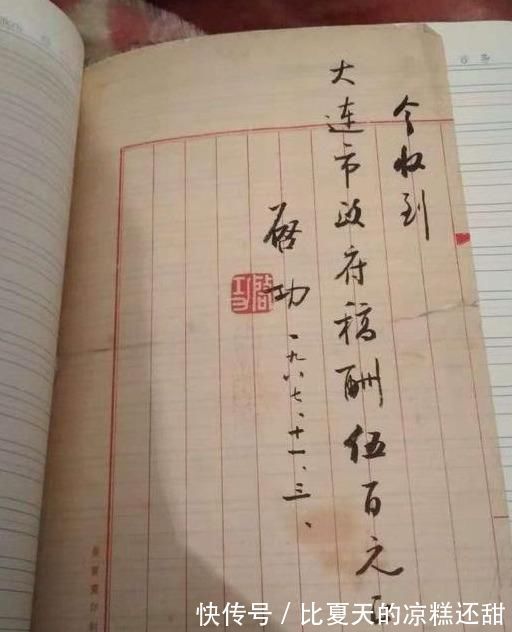 今收到
大連市政府稿酬伍百元
启功
一九八七、十一、三、
快传号 / 比夏天的凉糕还甜